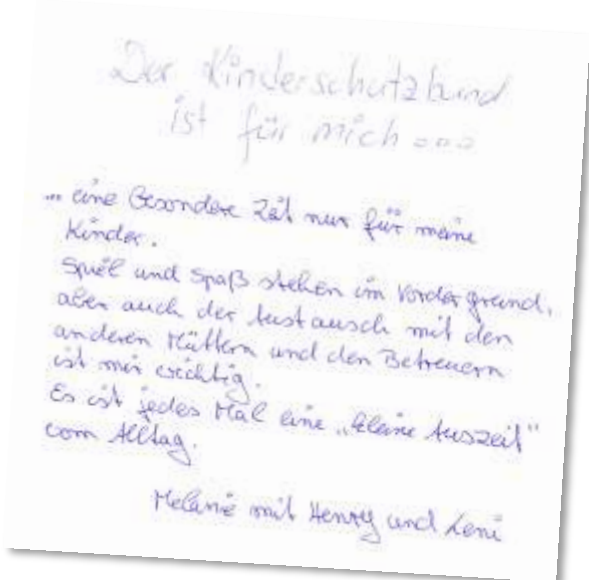 Der Kinderschutzbund
ist für mich...
... eine besondere Zeit nur für meine
Kinder.
Spiel und Spaß stehen im Vordergrund,
aber auch der Austausch mit den
anderen Müttern und den Betreuern
ist mir wichtig.
Es ist jedes Mal eine „kleine Auszeit"
vom Alltag.
Melanie mit Henry und Leni